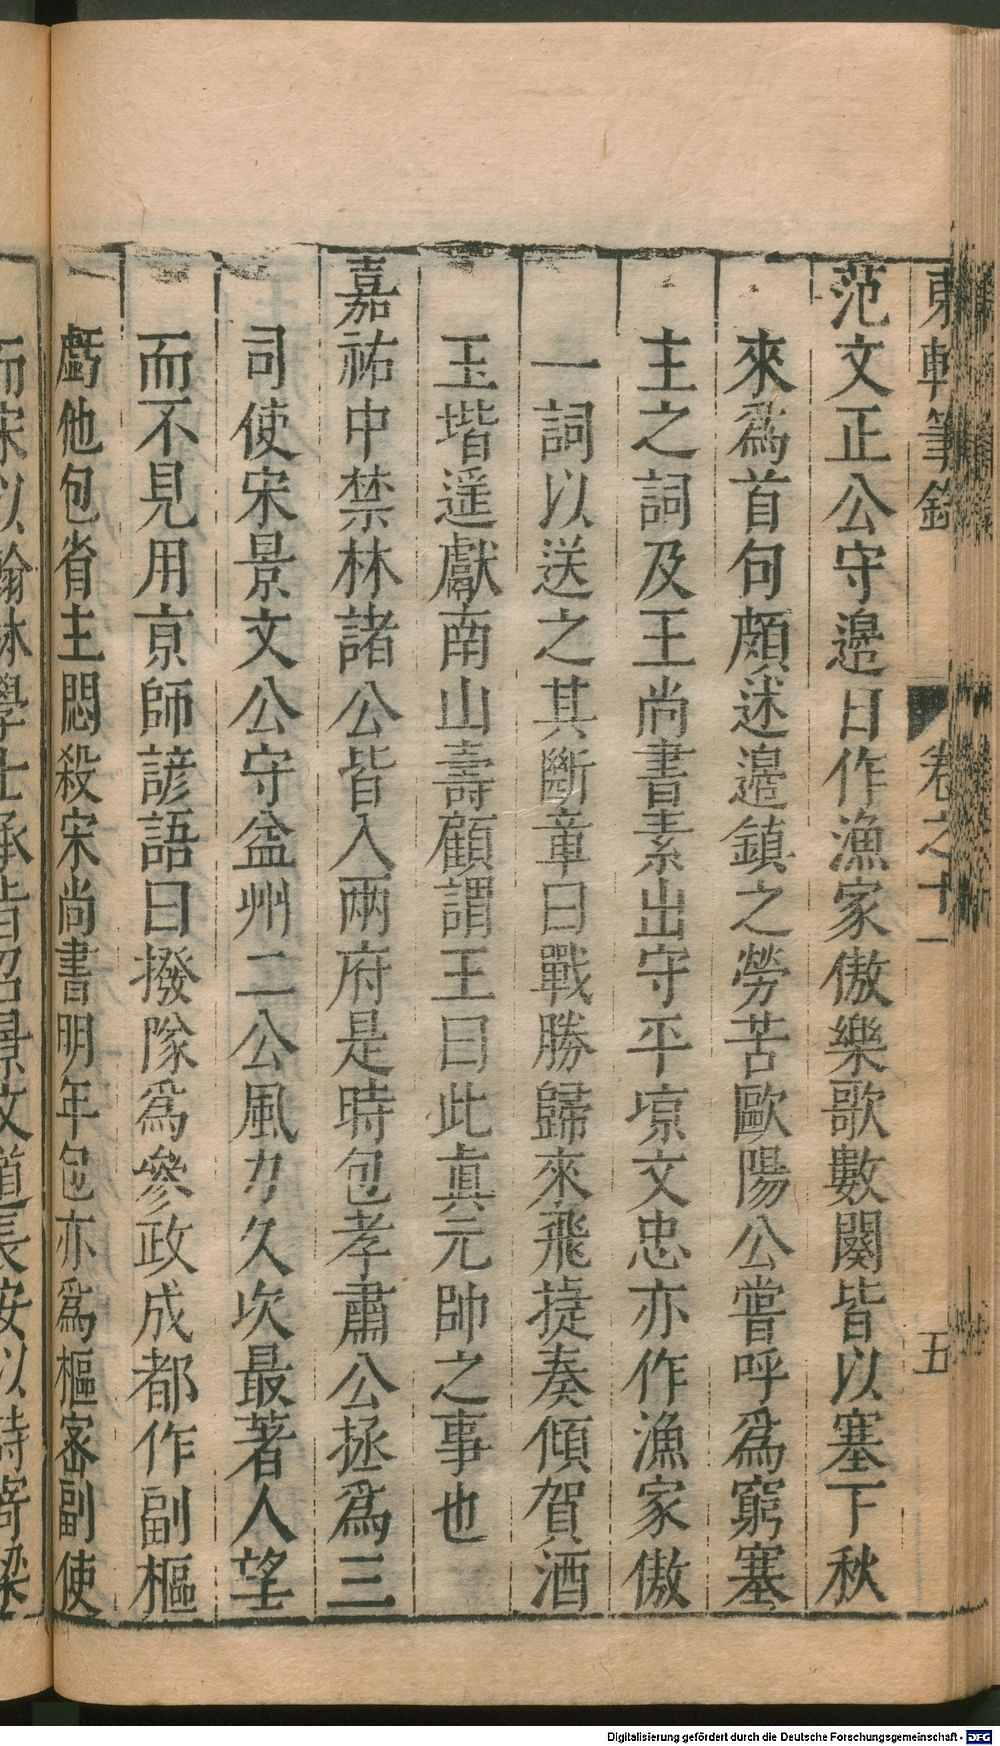 東軒筆錄 卷之十一 五
范文正公守邉日作漁家傲樂歌數闋皆以塞下秋
來爲首句頗述邉鎮之勞苦歐陽公嘗呼爲窮塞
主之詞及王尚書素出守平凉文忠亦作漁家傲
一詞以送之其斷章曰戰勝歸來飛捷奏傾賀酒
玉堦遥獻南山壽顧謂王曰此真元帥之事也
嘉祐中禁林諸公皆入兩府是時包孝肅公拯爲三
司使宋景文公守益州二公風力久次最著人望
而不見用京師諺語曰撥隊爲參政成都作副樞
虧他包省主悶殺宋尚書明年包亦爲樞密副使
而宋以翰林學士承旨召景文道長安以詩寄梁
Digitalisierung gefördert durch die Deutsche Forschungsgemeinschaft - DFG